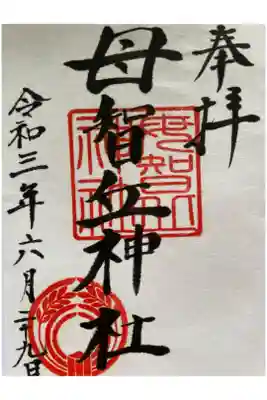 奉拝
母智丘神社
令和三年六月二十九日
母智丘
神社